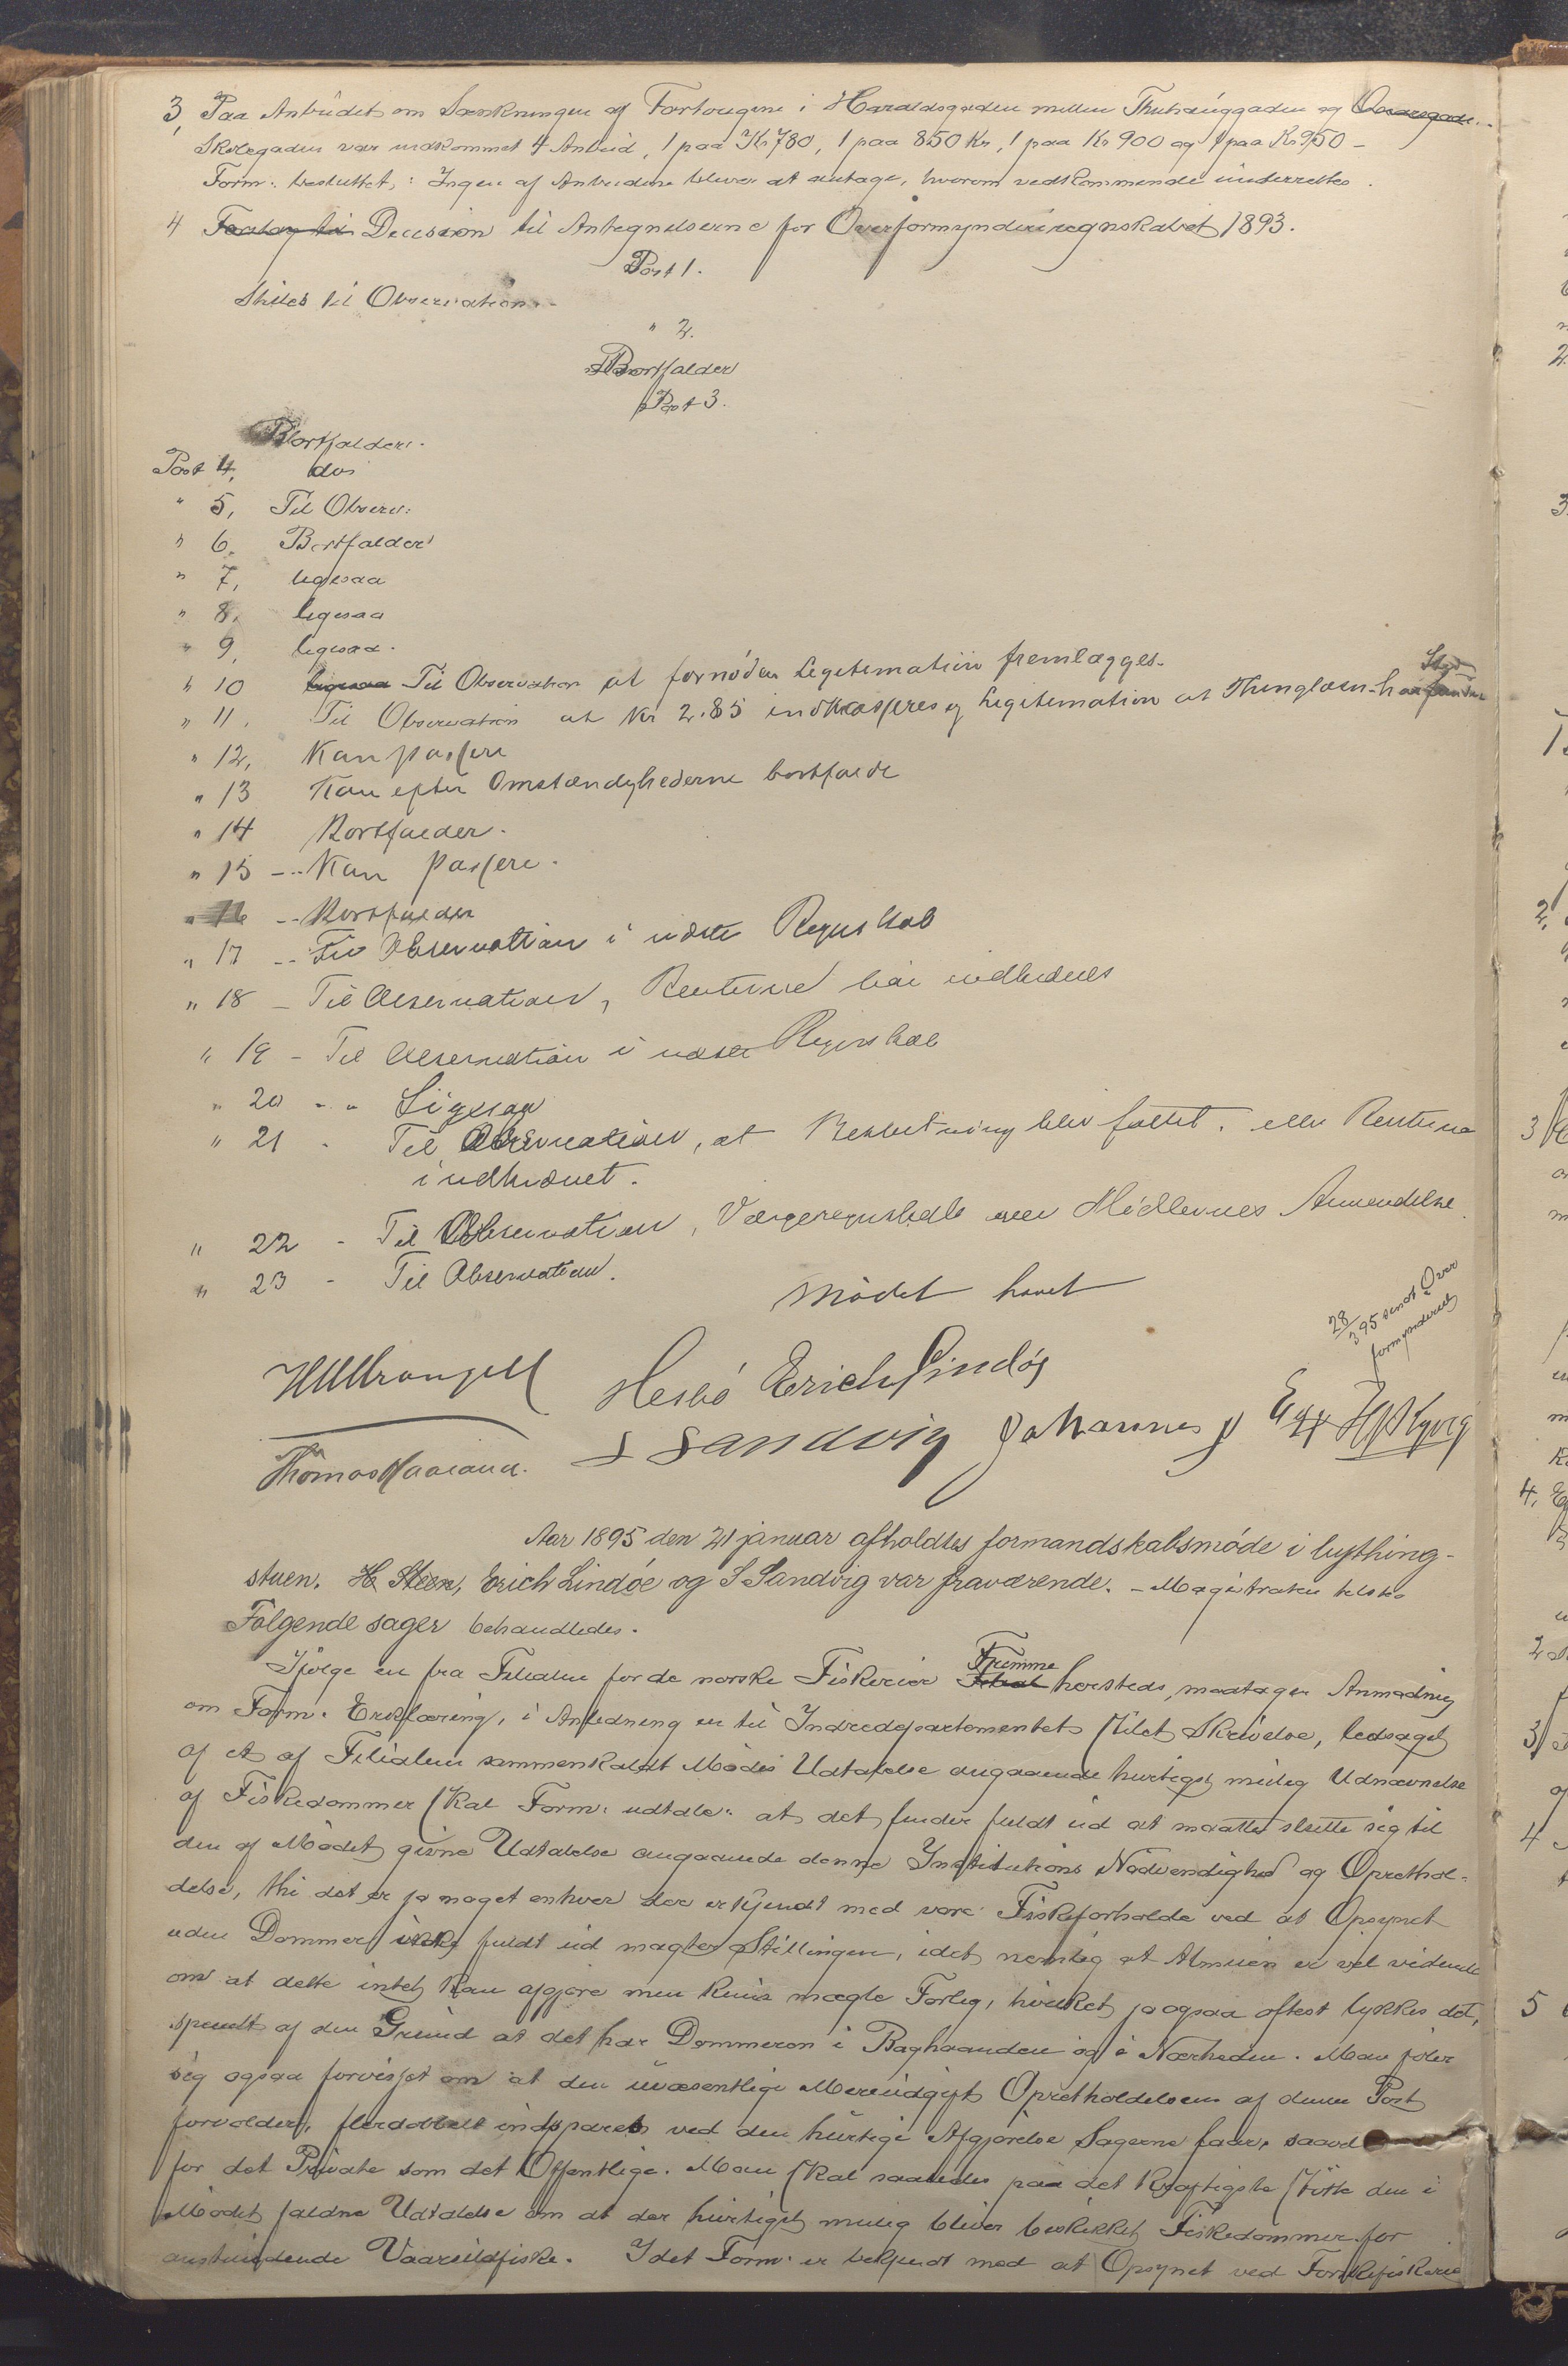 3, Paa Anbudet om Sænkningen af Fortougene i Haraldsgaden mellem Thuhauggaden og
Skolegaden var indkommet 4 Anbud, 1 paa Kr 780, 1 paa 850 Kr, 1 paa Kr 900 og 1 paa Kr 950 -
Form: besluttet: Ingen af Anbudene bliver at antage, hvorom vedkommende underrettes.
4 Forslag til Decision til Antegnelserne for Overformynderiregnskabet 1893.
Post 1.
Stilles til Observation.
" 2.
Bortfalder
Post 3.
Bortfalder.
Post 4, do
" 5, Til Observ:
" 6. Bortfalder
" 7, ligesaa
" 8, ligesaa
" 9, ligesaa.
" 10 ligesaa Til Observation at fornöden Legitimation fremlægges.
Sted
" 11. Til Observation at Kr 2.85 indkasseres og Legitimation at Thinglæsn. har funden
" 12, Kan passere
" 13 Kan efter Omstændighederne bortfalde
" 14 Bortfalder.
" 15 -- Kan passere.
" 16 -- Bortfalder
" 17 -- Til Observation i næste Regnskab
" 18 - Til Observation, Renterne bör indhentes
" 19 - Til Observation i næste Regnskab
" 20 - " Ligesaa
" 21 - Til Observation, at Beslutning blev fattet, eller Renterne
indhentet.
" 22 - Til Observation, Værgeregnskab over Midlernes Anvendelse.
" 23 - Til Observation.
Mödet hævet
28/3 95 sendt Over
formynderiet
HMWrangell Hesbö Erich Lindöe
Thomas Haaland. S Sandvig Johannes
Aar 1895 den 21 januar afholdtes formandskabsmöde i bything-
stuen. H Steen, Erich Lindöe og S Sandvig var fraværende. - Magistraten
Fölgende sager behandledes.
Fremme
Ifölge en fra Filialen for de norske Fiskerier Filial hersteds, modtagen Anmodning
om Form. Erklæring, i Anledning en til Indredepartementet stilet Skrivelse, ledsaget
af et af Filialen sammenkaldt Mödes Udtalelse angaaende hurtigst mulig Udnævnelse
af Fiskedommer skal Form: udtale: at det finder fuldt ud at maatte slutte sig til
den af Mödet givne Udtalelse angaaende denne Institutions Nödvendighed og Oprethol-
delse, thi det er jo noget enhver der er kjendt med vore Fiskeforholde ved at Opsynet
uden Dommer ikke fuldt ud magter Stillingen, idet nemlig at Almuen er vel vidende
om at dette intet kan afgjöre men kuns mægle Forlig, hvilket jo ogsaa oftest lykkes det,
af den Grund at det har Dommeren i Baghaanden og i Nærheden. Man föler
sig ogsaa forvisset om at den uvæsentlige Mereudgift Opretholdelsen af denne Post
forvolder, flerdobbelt indspares ved den hurtige Afgjörelse Sagerne faar, saavel
for det Private som det Offentlige. Man skal saaledes paa det kraftigste stötte den i
Mödet faldne Udtalelse om at der hurtigst mulig bliver beskikket Fiskedommer for
anstundende Vaarsildfiske. Idet Form: er bekjendt med at Opsynet ved Torskefiskerie